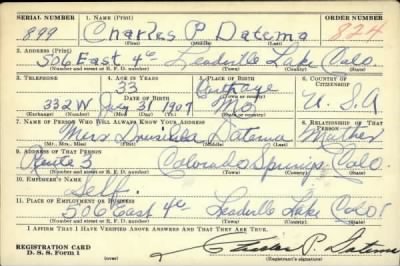 SERIAL NUMBER 1. NAME (Print) ORDER NUMBER
899 Charles P Datema 824
(First) (Middle) (Last)
2. ADDRESS (Print)
506 East 4th Leadville Lake Colo.
(Number and street or R. F. D. number) (Town) (County) (State)
3. TELEPHONE 4. AGE IN YEARS 5. PLACE OF BIRTH 6. COUNTRY OF CITIZENSHIP
33 Carthage
DATE OF BIRTH (Town or county)
332W July 31 1907 Mo. U. S. A
(Exchange) (No.) (Mo.) (Day) (Yr.) (State or country)
7. NAME OF PERSON WHO WILL ALWAYS KNOW YOUR ADDRESS 8. RELATIONSHIP OF THAT PERSON
Mrs Datema Mother
(Mr., Mrs., Miss) (First) (Middle) (Last)
9. ADDRESS OF THAT PERSON
Route 3 Colorado Springs Colo.
(Number and street or R. F. D. number) (Town) (County) (State)
10. EMPLOYER'S NAME
Self.
11. PLACE OF EMPLOYMENT OR BUSINESS
506 East 4th Leadville Lake Colo.
(Number and street or R. F. D. number) (Town) (County) (State)
I AFFIRM THAT I HAVE VERIFIED ABOVE ANSWERS AND THAT THEY ARE TRUE.
REGISTRATION CARD
D. S. S. Form 1 (over) Charles P. Datema
(Registrant's signature)